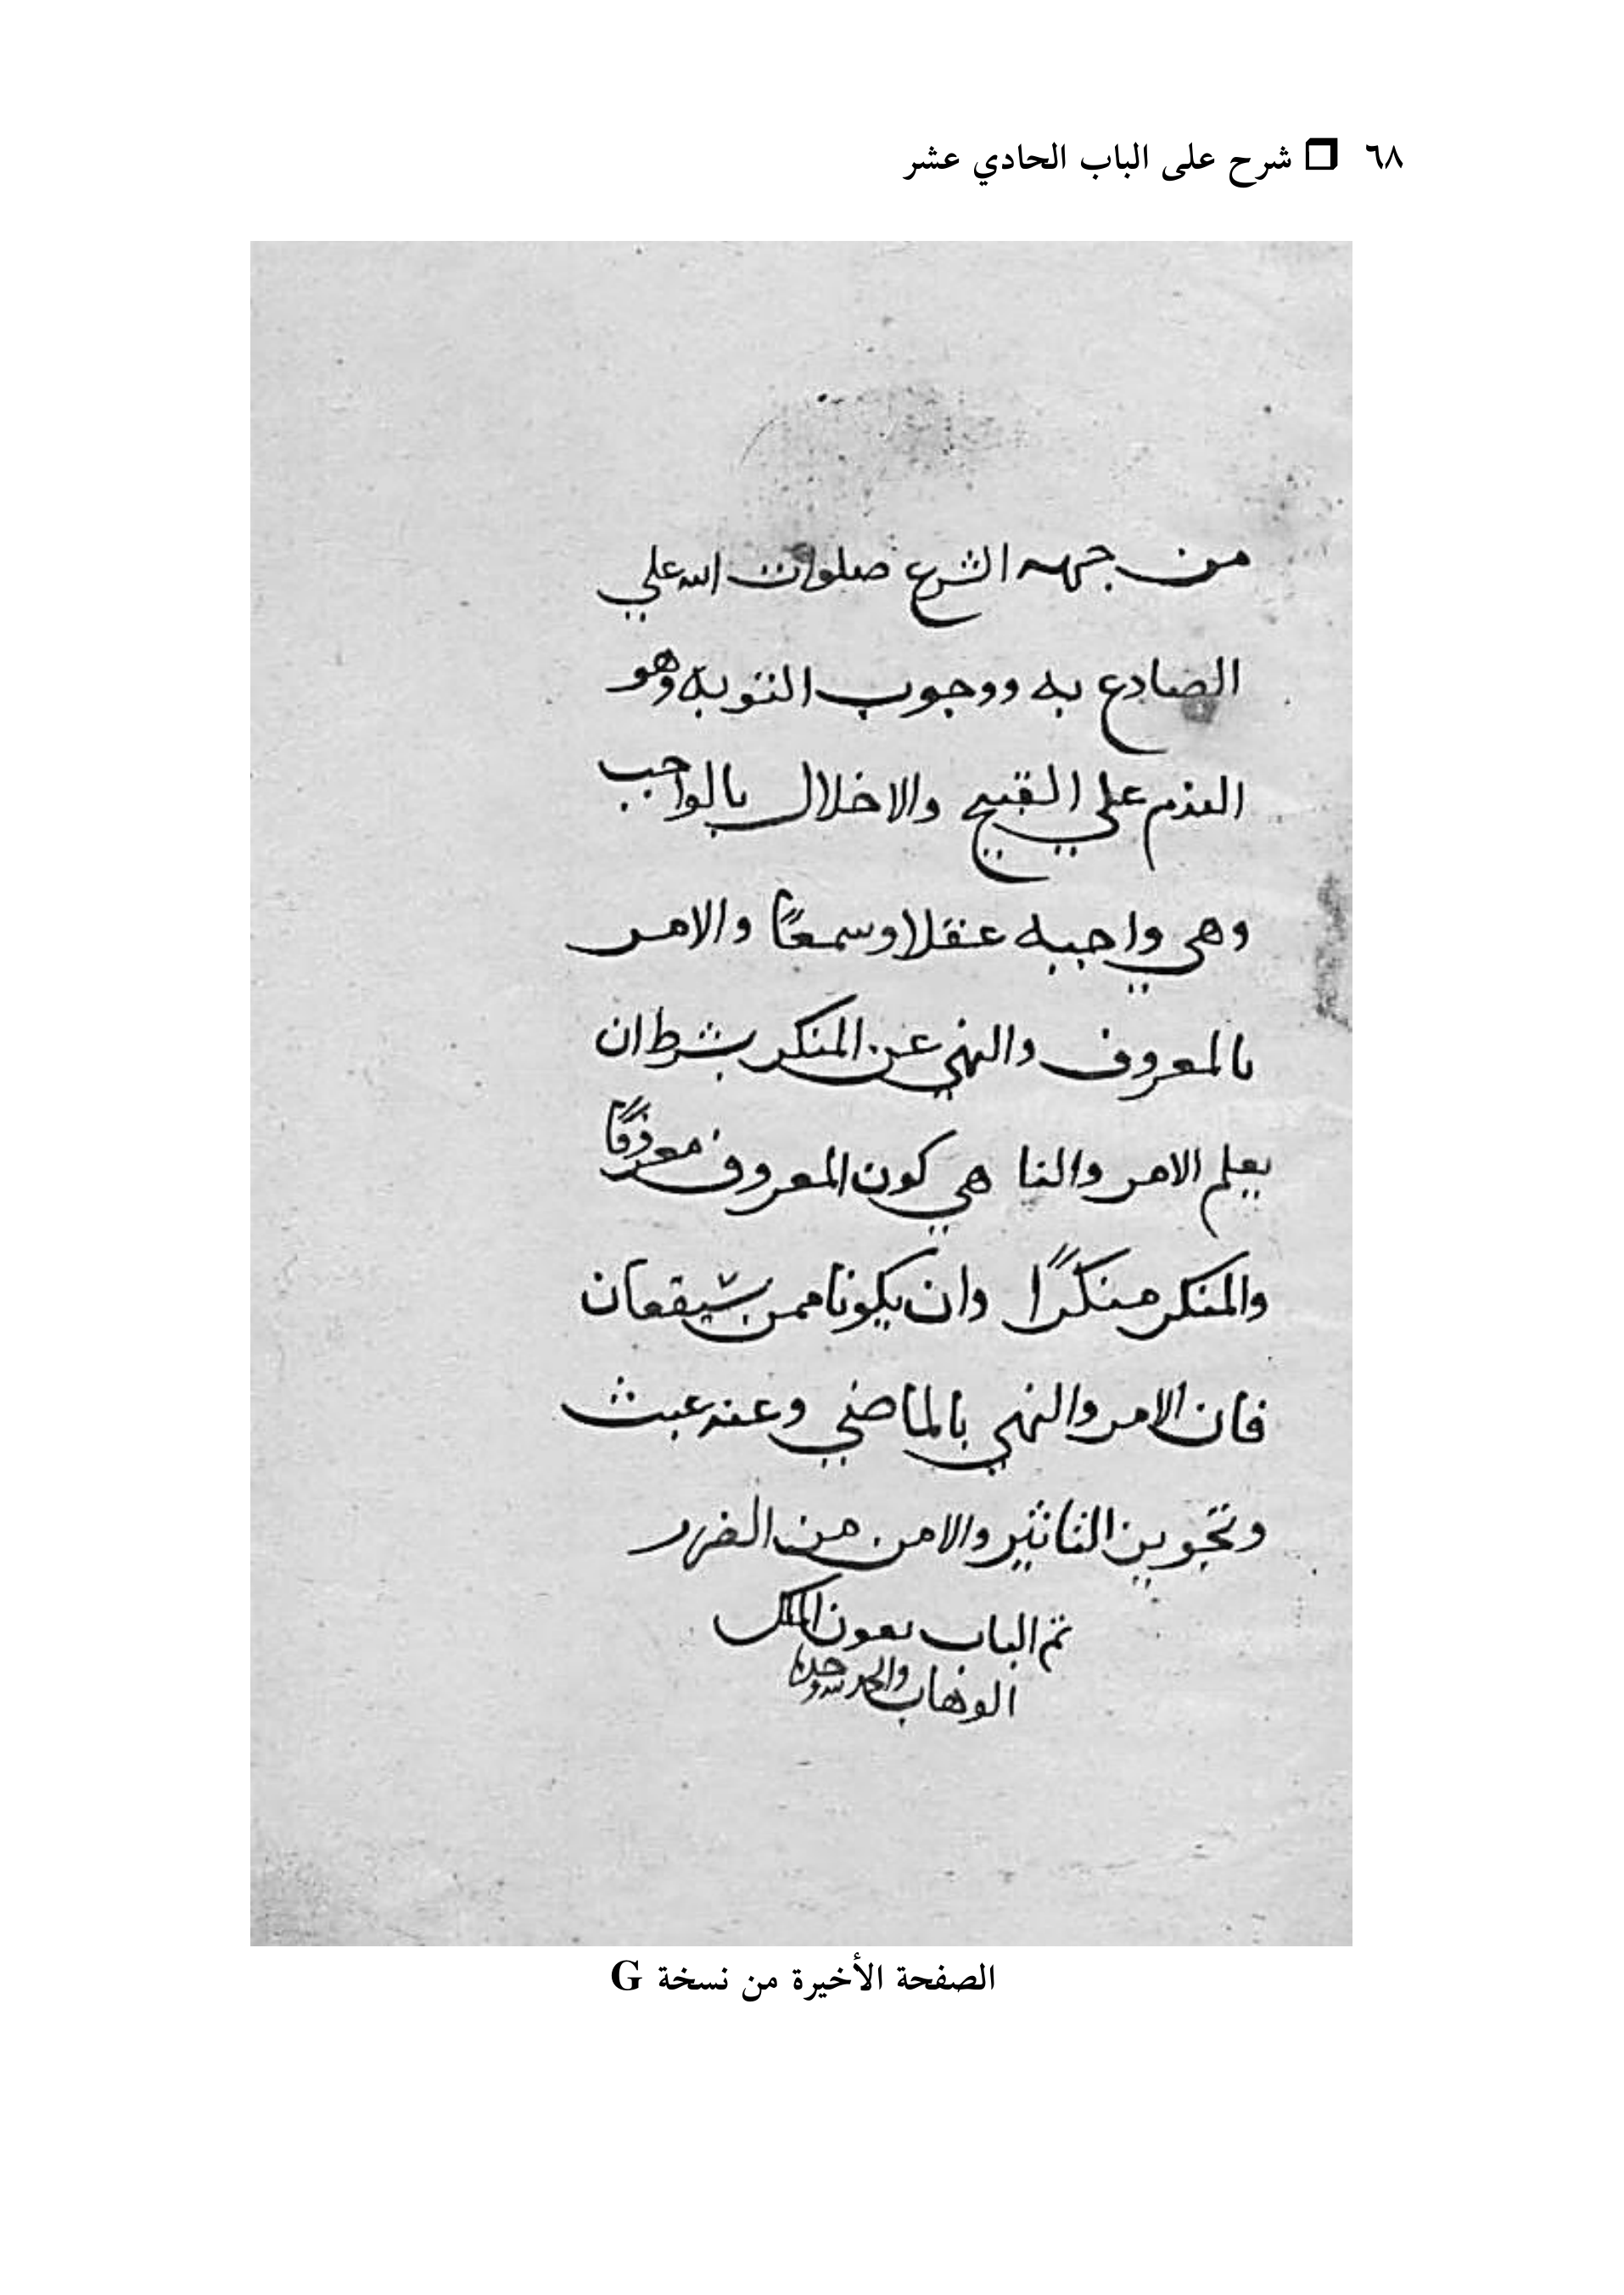 ٦٨ ❒ شرح على الباب الحادي عشر
من جهه الشرع صلوات الله علي
الصادع به ووجوب التوبه وهو
العزم علي القبيح والاخلال بالواجب
وهي واجبه عقلا وسمعًا والامر
بالمعروف والنهي عن المنكر بشرط ان
يعلم الامر والناهي كون المعروف معروفًا
والمنكر منكرًا وان يكونا مما سيقعان
فان الامر والنهي بالماضي وعنه عبث
وتجويز التاثير والامن من الضرر
تم الباب بعون الملك
الوهاب والحمد لله وحده
الصفحة الأخيرة من نسخة G